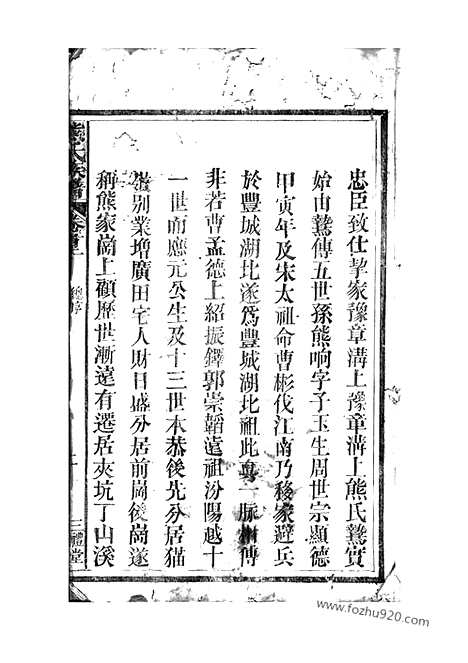 忠臣致仕挈家豫章溝上豫章溝上熊氏鷟實
始由鷟傳五世孫熊响字子玉生周世宗顯德
甲寅年及宋太祖命曹彬伐江南乃移家避兵
於豐城湖北遂爲豐城湖北祖此真一脈相傳
非若曹孟德上紹振鐸郭崇韜遠祖汾陽越十
一世而應元公生及十三世本恭後先分居猫
別業增廣田宅人財日盛分居前崗後崗遂
稱熊家崗上顧歷世漸遠有遷居夾坑丁山溪
熊氏族譜 卷首上 總序 三禮堂
www.fozhu920.com